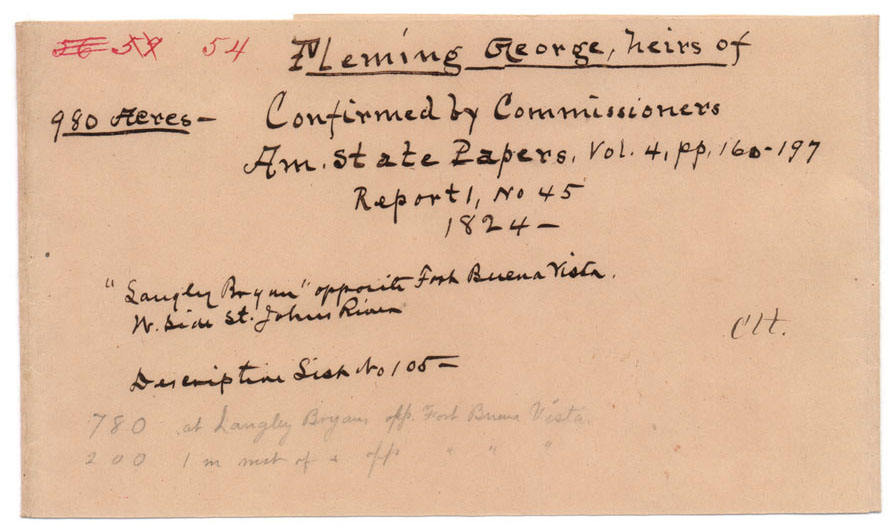 56 59 54 Fleming George, heirs of
980 Acres - Confirmed by Commissioners
Am. State Papers, Vol. 4, pp. 160-197
Report 1, No 45
1824 -
"Langley Bryan" opposite Fort Buena Vista.
W. Side St. Johns River
Clt.
Descriptive List No 105 -
780 at Langley Bryans opp. Fort Buena Vista.
200 1 m of & opp " " "